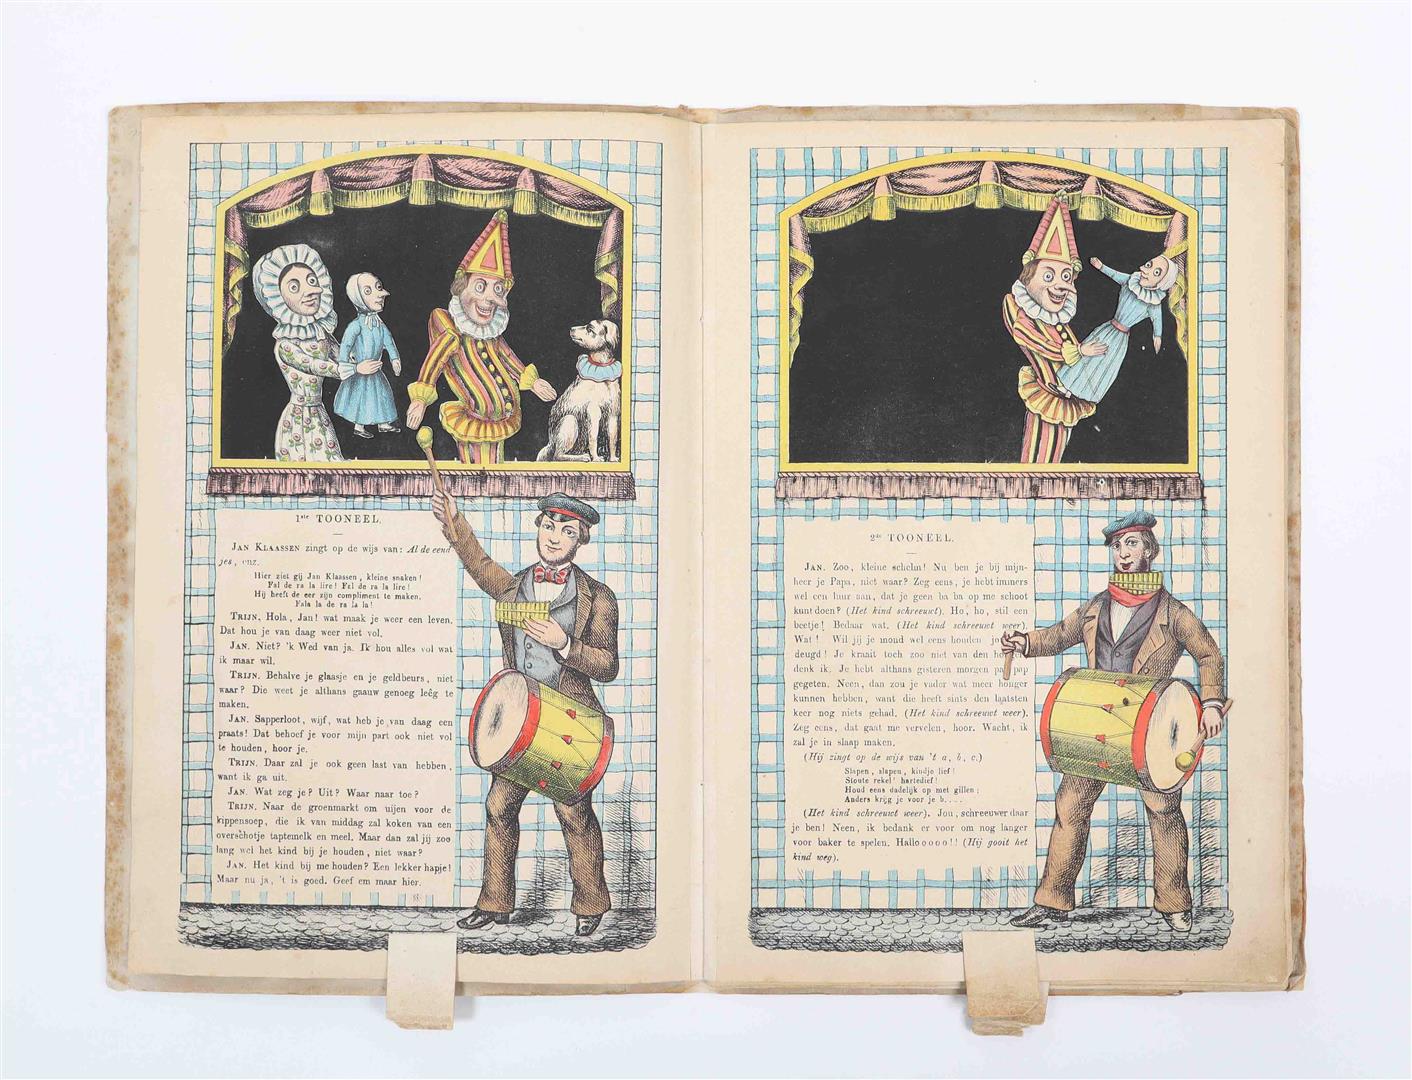 1ste TOONEEL.
JAN KLAASSEN zingt op de wijs van: Al de eend
jes, enz.
Hier ziet gij Jan Klaassen, kleine snaken!
Fal de ra la lire! Fal de ra la lire!
Hij heeft de eer zijn compliment te maken.
Fala la de ra la la!
TRIJN. Hola, Jan! wat maak je weer een leven.
Dat hou je van daag weer niet vol.
JAN. Niet? 'k Wed van ja. Ik hou alles vol wat
ik maar wil.
TRIJN. Behalve je glaasje en je geldbeurs, niet
waar? Die weet je althans gaauw genoeg leêg te
maken.
JAN. Sapperloot, wijf, wat heb je van daag een
praats! Dat behoef je voor mijn part ook niet vol
te houden, hoor je.
TRIJN. Daar zal je ook geen last van hebben,
want ik ga uit.
JAN. Wat zeg je? Uit? Waar naar toe?
TRIJN. Naar de groenmarkt om uijen voor de
kippensoep, die ik van middag zal koken van een
overschotje taptemelk en meel. Maar dan zal jij zoo
lang wel het kind bij je houden, niet waar?
JAN. Het kind bij me houden? Een lekker hapje!
Maar nu ja, 't is goed. Geef em maar hier.
2de TOONEEL.
JAN. Zoo, kleine schelm! Nu ben je bij mijn-
heer je Papa, niet waar? Zeg eens, je hebt immers
wel een luur aan, dat je geen ba ba op me schoot
kunt doen? (Het kind schreeuwt). Ho, ho, stil een
beetje! Bedaar wat. (Het kind schreeuwt weer).
Wat! Wil jij je mond wel eens houden
deugd! Je kraait toch zoo niet van den
denk ik. Je hebt althans gisteren morgen pap
gegeten. Neen, dan zou je vader wat meer honger
kunnen hebben, want die heeft sints den laatsten
keer nog niets gehad. (Het kind schreeuwt weer).
Zeg eens, dat gaat me vervelen, hoor. Wacht, ik
zal je in slaap maken.
(Hij zingt op de wijs van 't a, b, c.)
Slapen, slapen, kindje lief!
Stoute rekel! hartedief!
Houd eens dadelijk op met gillen;
Anders krijg je voor je b....
(Het kind schreeuwt weer). Jou, schreeuwer daar
je ben! Neen, ik bedank er voor om nog langer
voor baker te spelen. Hallooooo!! (Hij gooit het
kind weg).